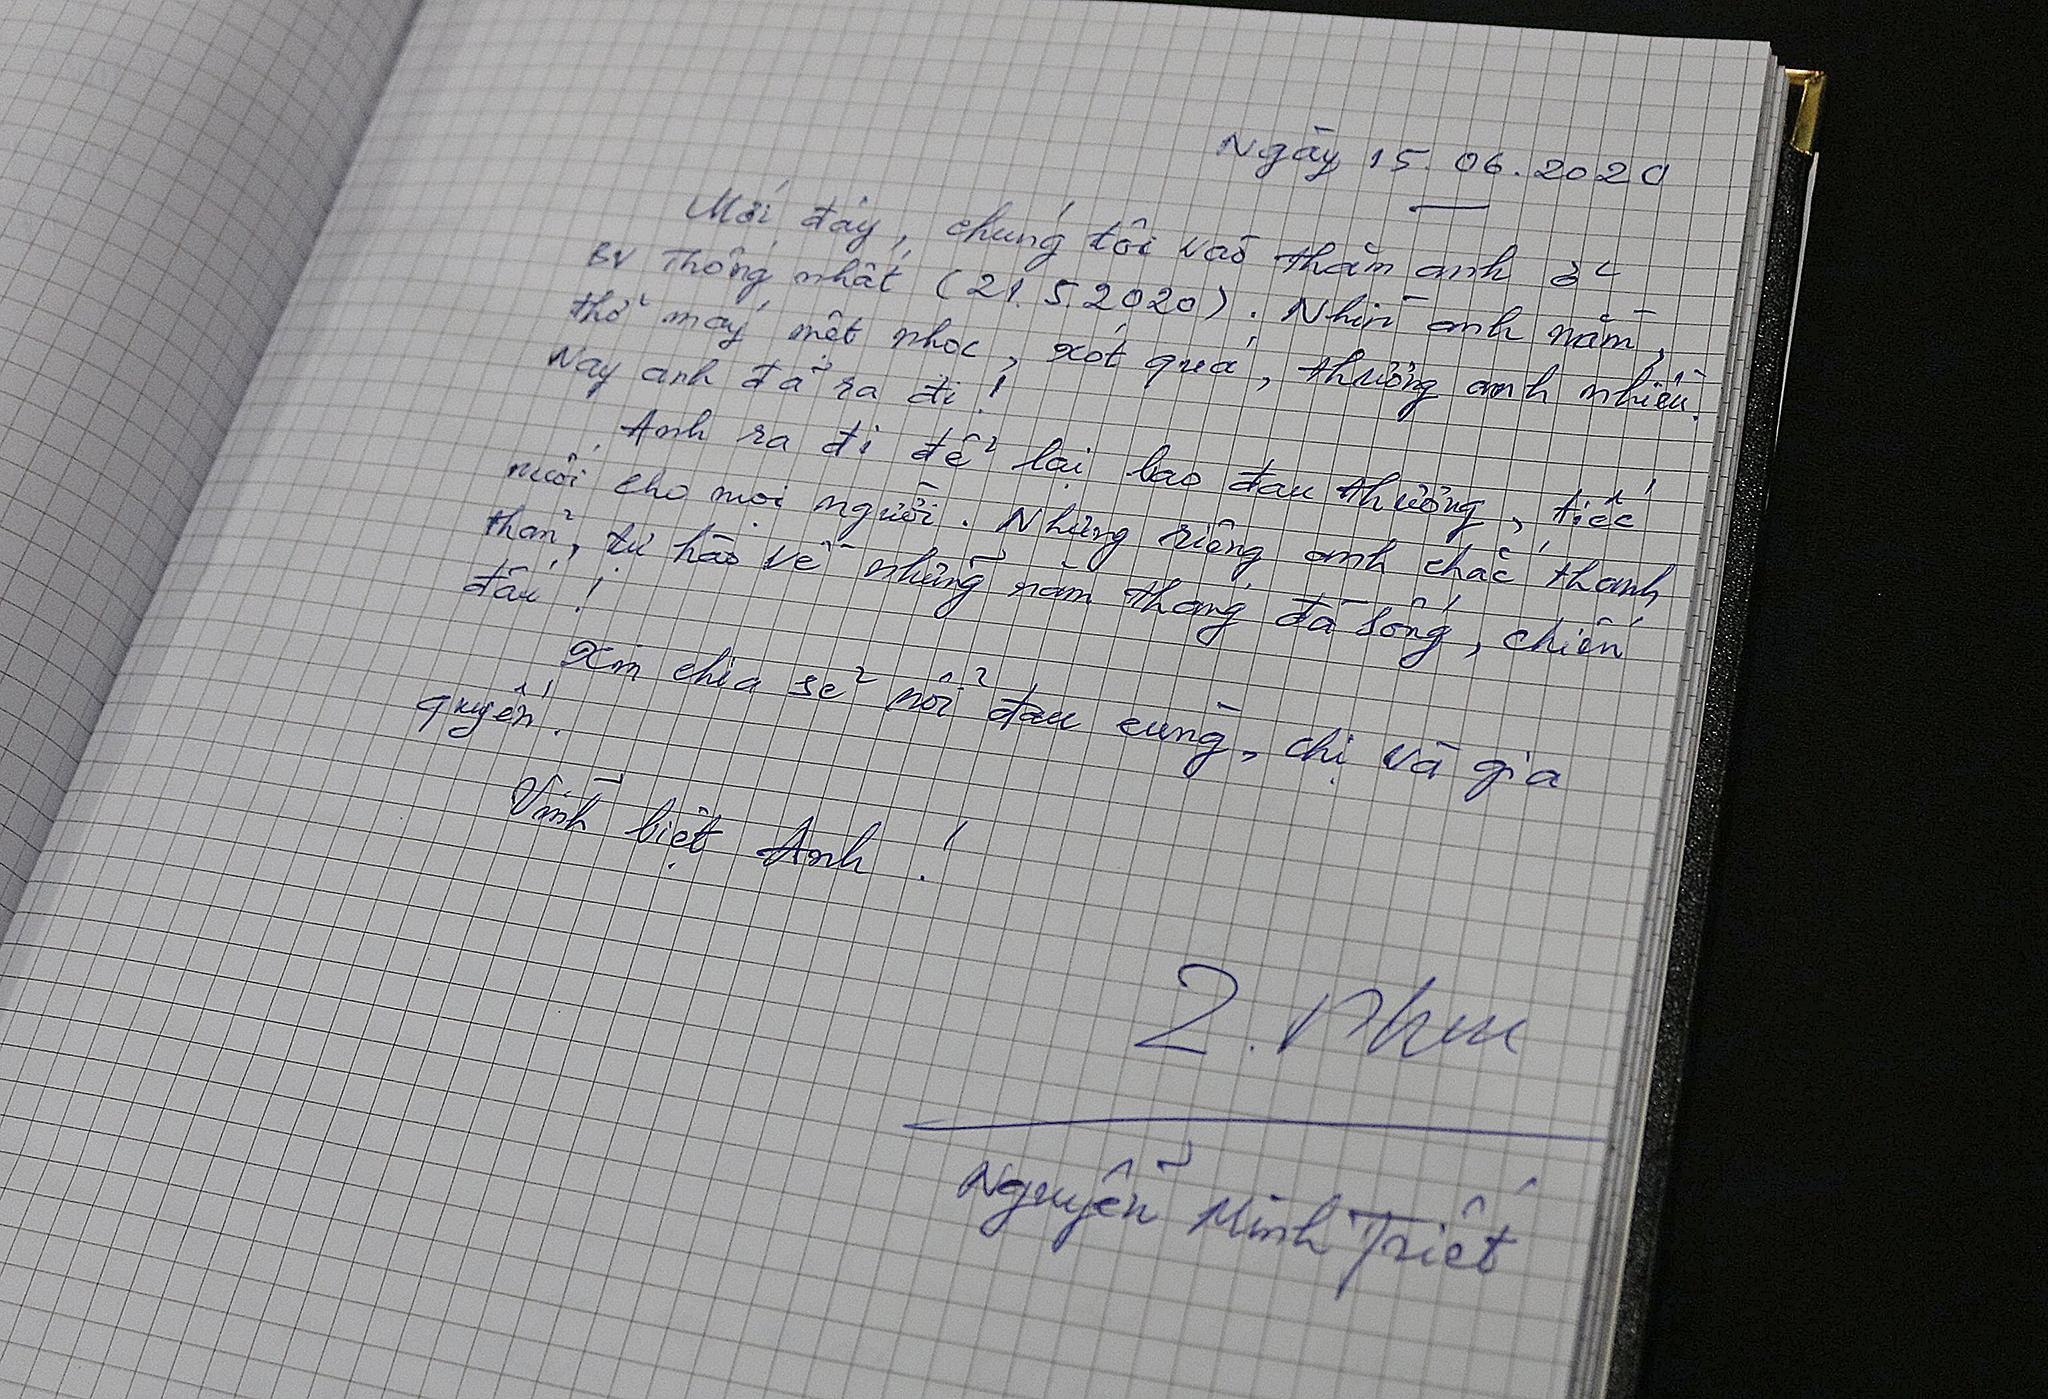 Ngày 15.06.2020
Mới đây, chúng tôi vào thăm anh ở
BV Thống nhất (21.5.2020). Nhìn anh nằm,
thở máy mệt nhọc, xót quá, thương anh nhiều.
Nay anh đã ra đi!
Anh ra đi để lại bao đau thương, tiếc
nuối cho mọi người. Nhưng riêng anh chắc thanh
thản, tự hào về những năm tháng đã sống, chiến
đấu!
Xin chia sẻ nỗi đau cùng, chị và gia
quyến.
Vĩnh biệt Anh!
Nguyễn Minh Triết